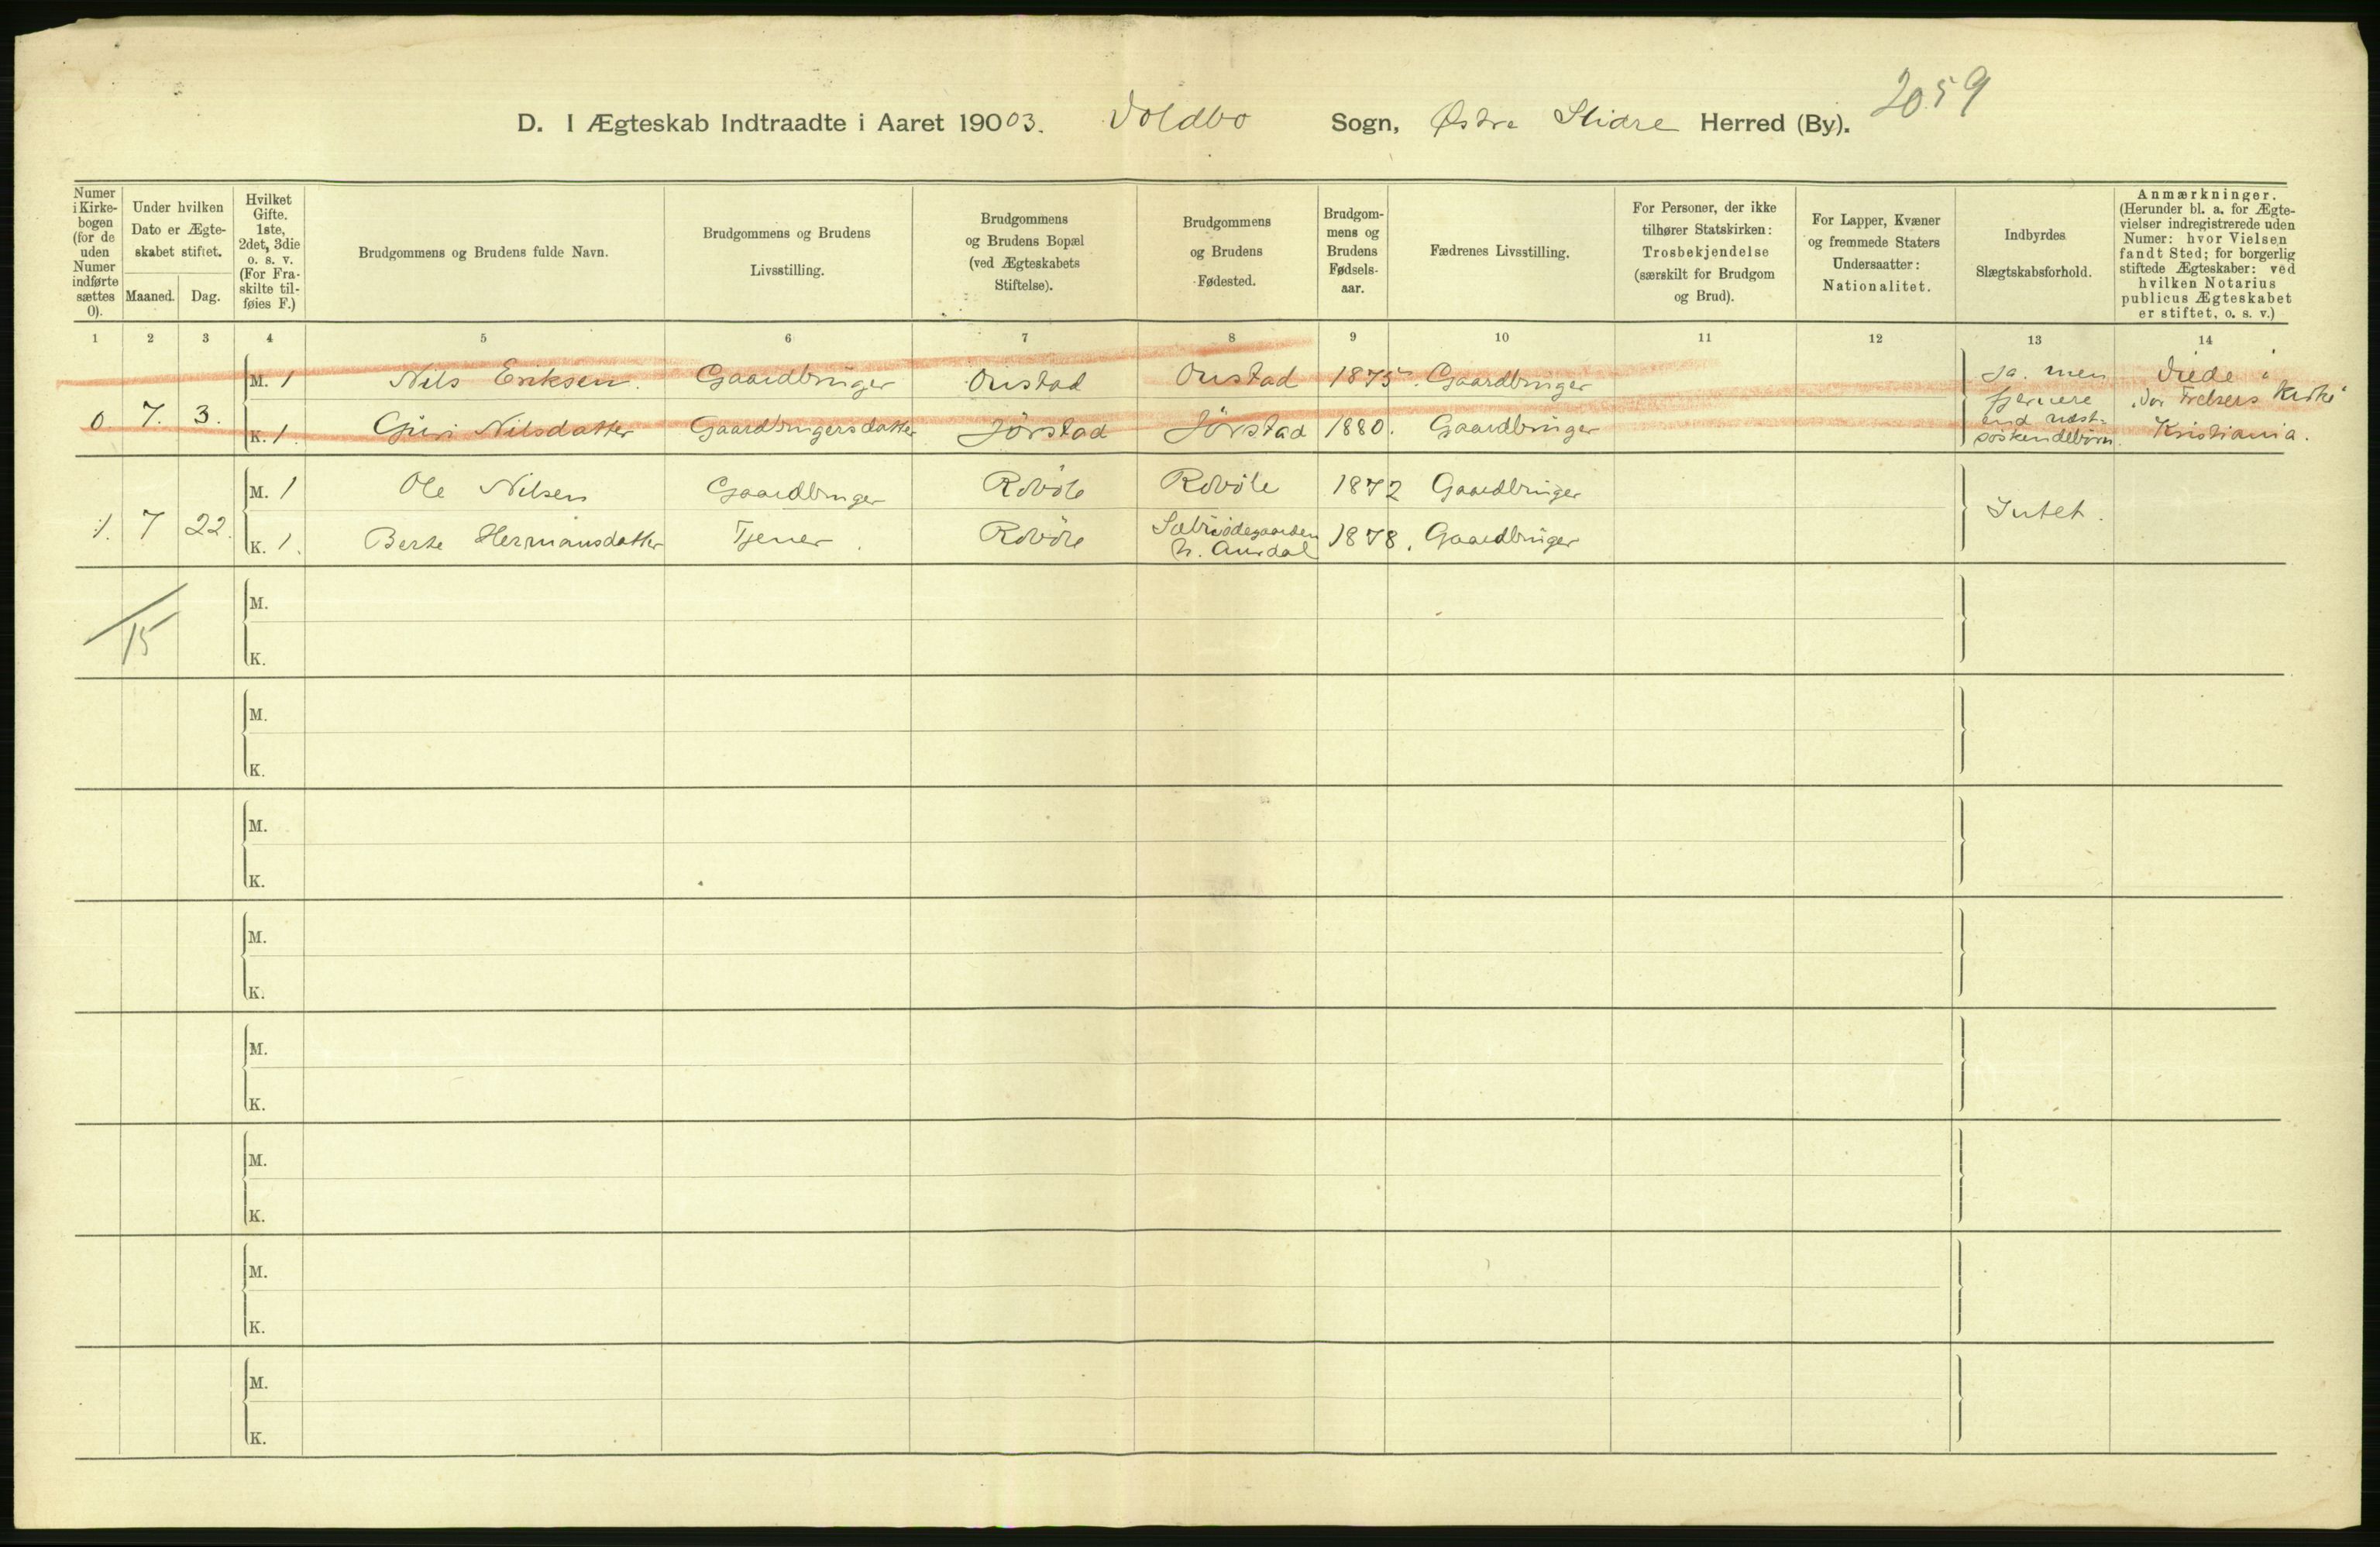 2059
D. I Ægteskab Indtraadte i Aaret 19003. Voldbo Sogn, Østre Slidre Herred (By).
Numer i Kirkebogen (for de uden Numer indførte sættes 0).
Under hvilken Dato er Ægteskabet stiftet.
Maaned. Dag.
Hvilket Gifte. 1ste, 2det, 3die o. s. v. (For Fraskilte tilføies F.)
Brudgommens og Brudens fulde Navn.
Brudgommens og Brudens Livsstilling.
Brudgommens og Brudens Bopæl (ved Ægteskabets Stiftelse).
Brudgommens og Brudens Fødested.
Brudgommens og Brudens Fødselsaar.
Fædrenes Livsstilling.
For Personer, der ikke tilhører Statskirken: Trosbekjendelse (særskilt for Brudgom og Brud).
For Lapper, Kvæner og fremmede Staters Undersaatter: Nationalitet.
Indbyrdes Slægtskabsforhold.
Anmærkninger. (Herunder bl. a. for Ægtevielser indregistrerede uden Numer: hvor Vielsen fandt Sted; for borgerlig stiftede Ægteskaber: ved hvilken Notarius publicus Ægteskabet er stiftet, o. s. v.)
1 2 3 4 5 6 7 8 9 10 11 12 13 14
M. 1 Nils Eriksen. Gaardbruger Oustad Oustad 1875. Gaardbruger
0 7. 3. K. 1. Guri Nilsdatter Gaardbrugersdatter Jørstad Jørstad 1880. Gaardbruger
Ja. men
fjernere
end næst-
søskendebørn
Viede i
"Vor Frelsers Kirke"
Kristiania.
M. 1 Ole Nilsen Gaardbruger Robøle Robøle 1872 Gaardbruger
1. 7 22. K. 1. Berte Hermansdatter Tjener. Robøle
N. Aurdal 1878. Gaardbruger
Intet.
15
M.
K.
M.
K.
M.
K.
M.
K.
M.
K.
M.
K.
M.
K.
M.
K.